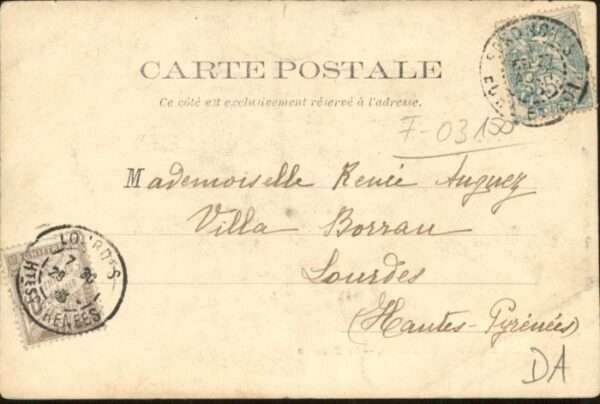 CARTE POSTALE
Ce côté est exclusivement réservé à l'adresse.
F-03150
Mademoiselle Renée Anguez
Villa Borrau
Lourdes
(Hautes-Pyrénées)
DA
LOURDES
7
29
05